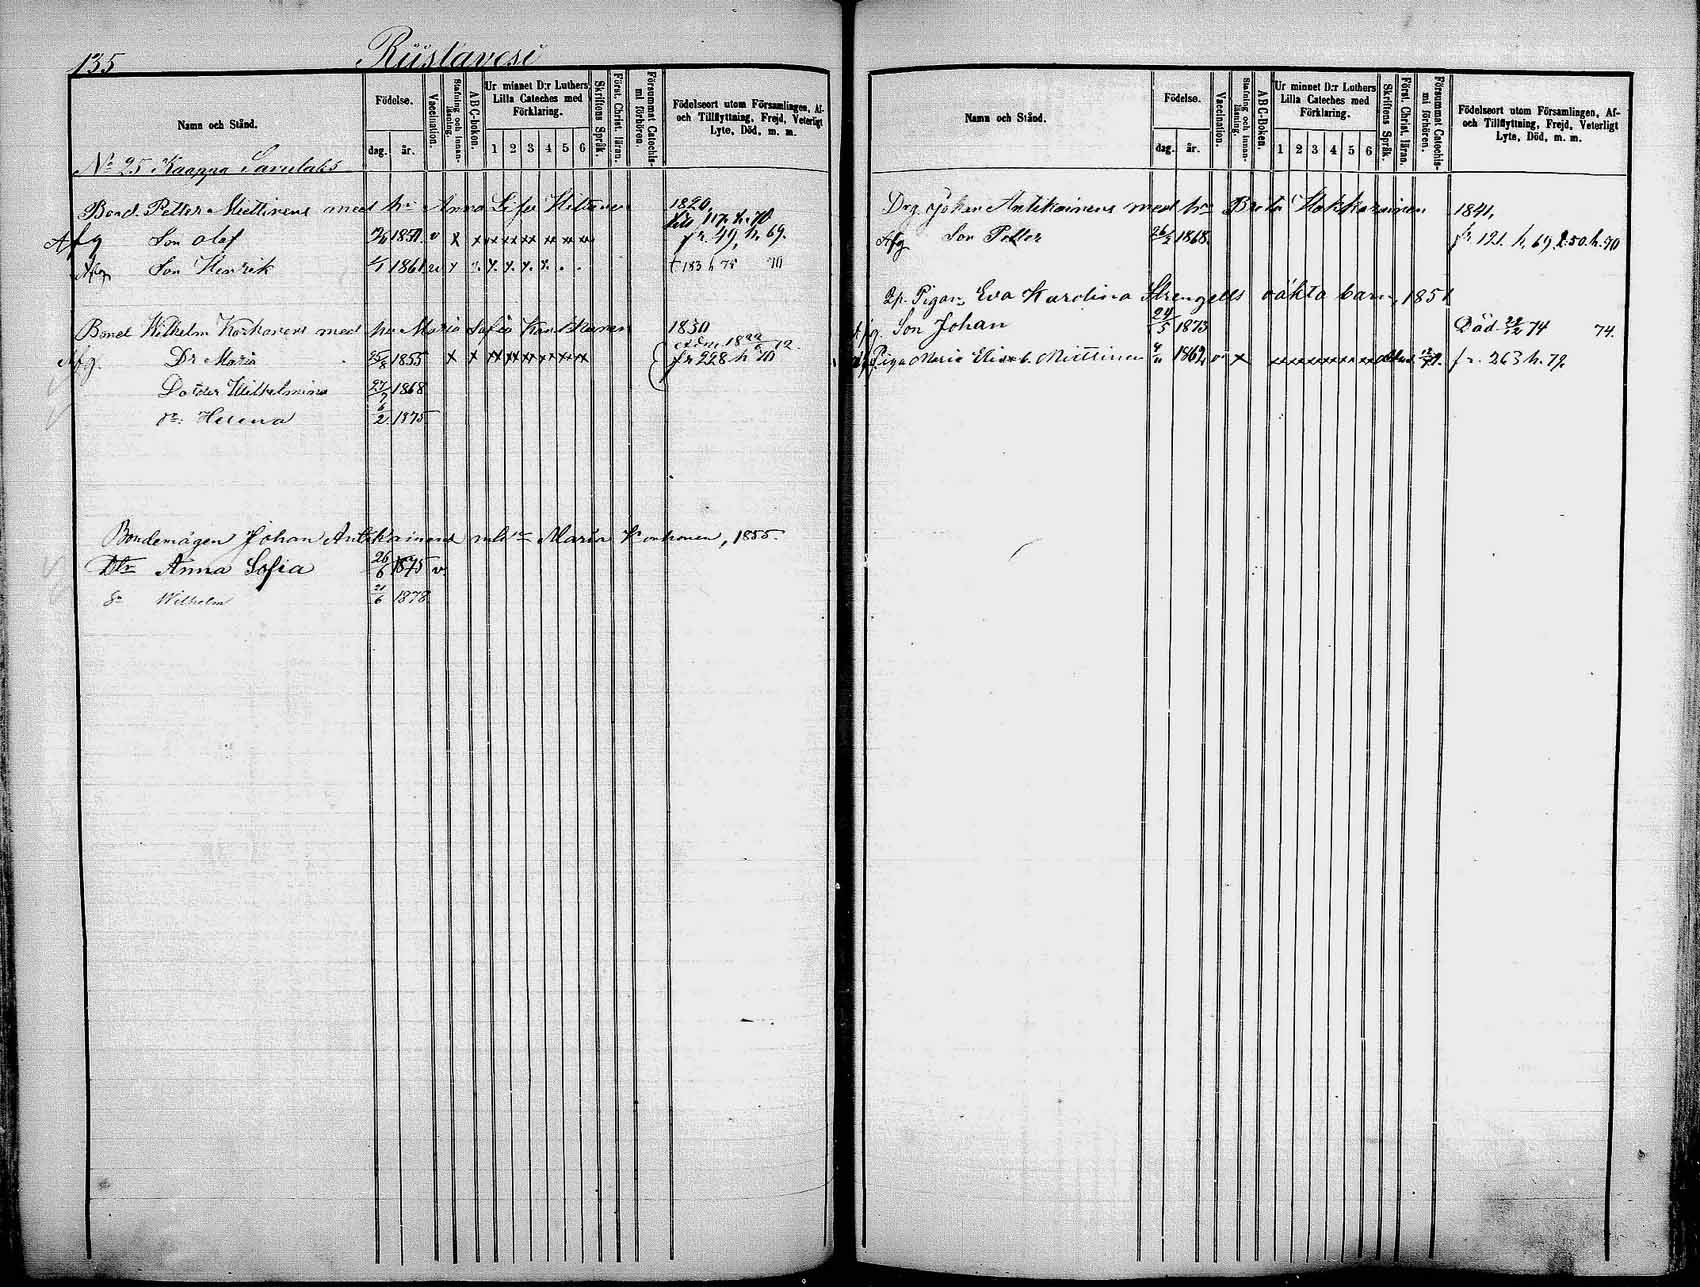 135 Riistavesi
Namn och Stånd. Födelse. dag. år. Vaccination. Stafning och innanläsning. A B C-boken. Ur minnet D:r Luthers Lilla Cateches med Förklaring. 1 2 3 4 5 6 Skriftens Språk. Först. Christ. läran. Försummat Catechismi förhören. Födelseort utom Församlingen, Af- och Tillflyttning, Frejd, Veterligt Lyte, Död, m. m.
No 25 Kaappa Savulaks
Bond. Petter Miettinens med hu Anna Sofia 1820,
117. h. 70
Afg Son Olof 1851 v x x x x x x x x fr. 49, h. 69.
Afg Son Henrik 1861 183 h 75 70
Bond Wilhelm Korhonens med hu Maria Sofia 1830
Afg. Dr Maria 25/8 1855 x x x x x x x x fr 228 h 70
Dotter Wilhelmina 27/7 1868
Dr: Helena 6/2 1875
Bondemågen Johan Antikainens m hu Maria Korhonen, 1855.
Dtr Anna Sofia 26/6 1875 v.
Sn Wilhelm 21/6 1878
Namn och Stånd. Födelse. dag. år. Vaccination. Stafning och innanläsning. A B C-Boken. Ur minnet D:r Luthers Lilla Cateches med Förklaring. 1 2 3 4 5 6 Skriftens Språk. Först. Christ. läran. Försummat Catechismi förhören. Födelseort utom Församlingen, Af- och Tillflyttning, Frejd, Veterligt Lyte, Död, m. m.
Drg. Antikainens med hu Brita 1841,
Afg Son Petter 26/2 1868. fr 121. h. 69, 50. h. 70
Pigan Eva Karolina Strengells oäkta barn, 1851
Afg. Son Johan 24/5 1873 Död 22/12 74 74.
Afg Piga Maria Elisab. Miettinen 1862 v x x x x x x x x fr. 263 h. 79.